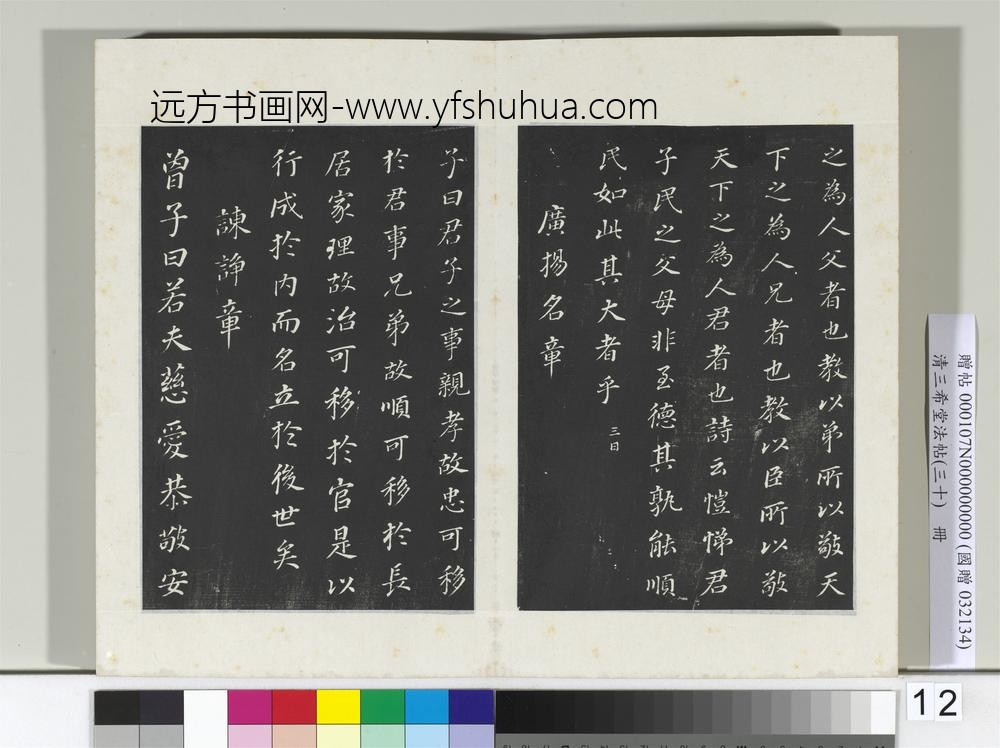 远方书画网-www.yfshuhua.com
之為人父者也教以弟所以敬天
下之為人兄者也教以臣所以敬
天下之為人君者也詩云愷悌君
子民之父母非至德其孰能順
民如此其大者乎
三日
廣揚名章
子曰君子之事親孝故忠可移
於君事兄弟故順可移於長
居家理故治可移於官是以
行成於內而名立於後世矣
諫諍章
曾子曰若夫慈愛恭敬安
贈帖 000107N000000000 (國贈 032134)
清三希堂法帖(三十) 冊
12